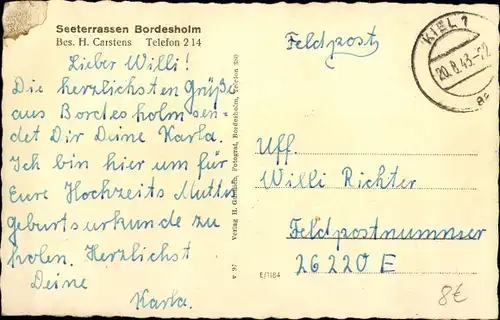 Seeterrassen Bordesholm
Bes. H. Carstens Telefon 214
Lieber Willi!
Die herzlichsten Grüße
aus Bordesholm sen-
det Dir Deine Karla.
Ich bin hier um für
Eure Hochzeits Mutter
geburtsurkunde zu
holen. Herzlichst
Deine
Karla.
v 97 Verlag H. Fotograf, Bordesholm, Telefon 280
Feldpost
KIEL 1
20.8.43-22
Uff.
Willi Richter
Feldpostnummer
26220 E
E/1184
8€